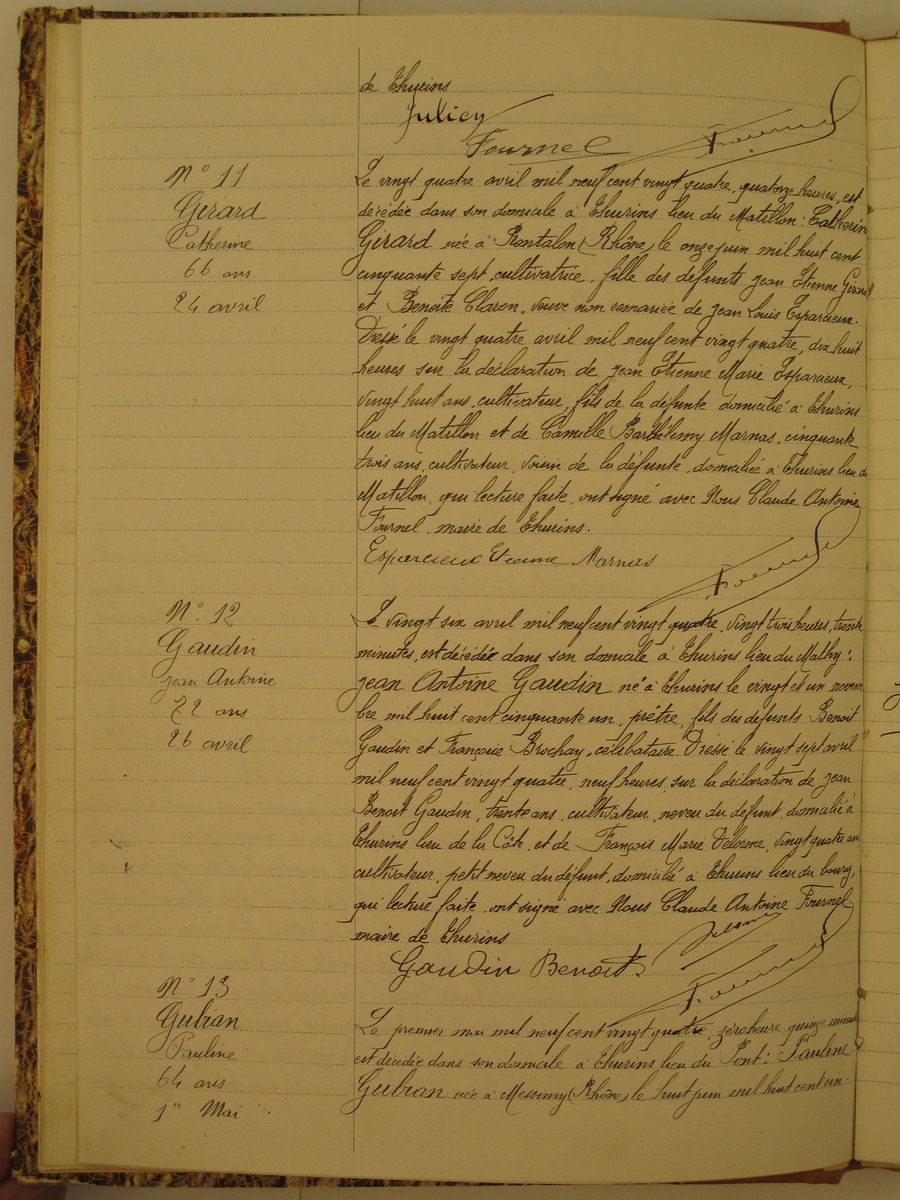 de Thurins
Julien
Fournel
Fournel
N° 11
Girard
Catherine
66 ans
24 avril
Le vingt quatre avril mil neuf cent vingt quatre, quatorze heures, est
décédée dans son domicile à Thurins lieu du Matillon : Catherin
Girard née à Rontalon (Rhône) le onze juin mil huit cent
cinquante sept, cultivatrice, fille des défunts Jean Etienne Girard
et Benoite Claron, veuve non remariée de Jean Louis Esparcieux.
Dressé le vingt quatre avril mil neuf cent vingt quatre, dix huit
heures sur la déclaration de Jean Etienne Marie Esparcieux,
vingt huit ans, cultivateur, fils de la défunte domicilié à Thurins
lieu du Matillon et de Camille Barthélemy Marnas, cinquante
trois ans, cultivateur, voisin de la défunte, domicilié à Thurins lieu du
Matillon, qui lecture faite, ont signé avec Nous Claude Antoine
Fournel, maire de Thurins.
Esparcieux Etienne Marnas
Fournel
N° 12
Gaudin
Jean Antoine
72 ans
26 avril
Le vingt six avril mil neuf cent vingt quatre, vingt trois heures, trente
minutes, est décédé dans son domicile à Thurins lieu du Mathy :
Jean Antoine Gaudin né à Thurins le vingt et un novem
bre mil huit cent cinquante un, prêtre, fils des défunts Benoit
Gaudin et Françoise Brochay, célibataire. Dressé le vingt sept avril
mil neuf cent vingt quatre, neuf heures, sur la déclaration de Jean
Benoit Gaudin, trente ans, cultivateur, neveu du défunt, domicilié à
Thurins lieu de la Côte, et de François Marie Delorme, vingt quatre ans
cultivateur, petit neveu du défunt, domicilié à Thurins lieu du bourg,
qui lecture faite, ont signé avec Nous Claude Antoine Fournel
maire de Thurins
Gaudin Benoit. Delorme
Fournel
N° 13
Gubian
Pauline
64 ans
1er Mai
Le premier mai mil neuf cent vingt quatre, zéro heure, quinze minutes
est décédée dans son domicile à Thurins lieu du Pont : Pauline
Gubian née à Messimy (Rhône) le huit juin mil huit cent cin-